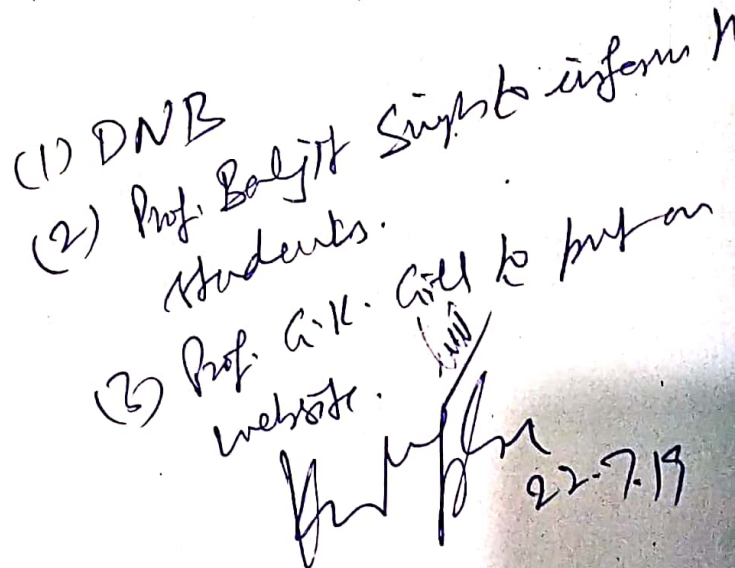 (1) DNB
(2) Prof. Baljit Singh to inform
students.
(3) Prof. G.K. Gill to put on
website.
22.7.19